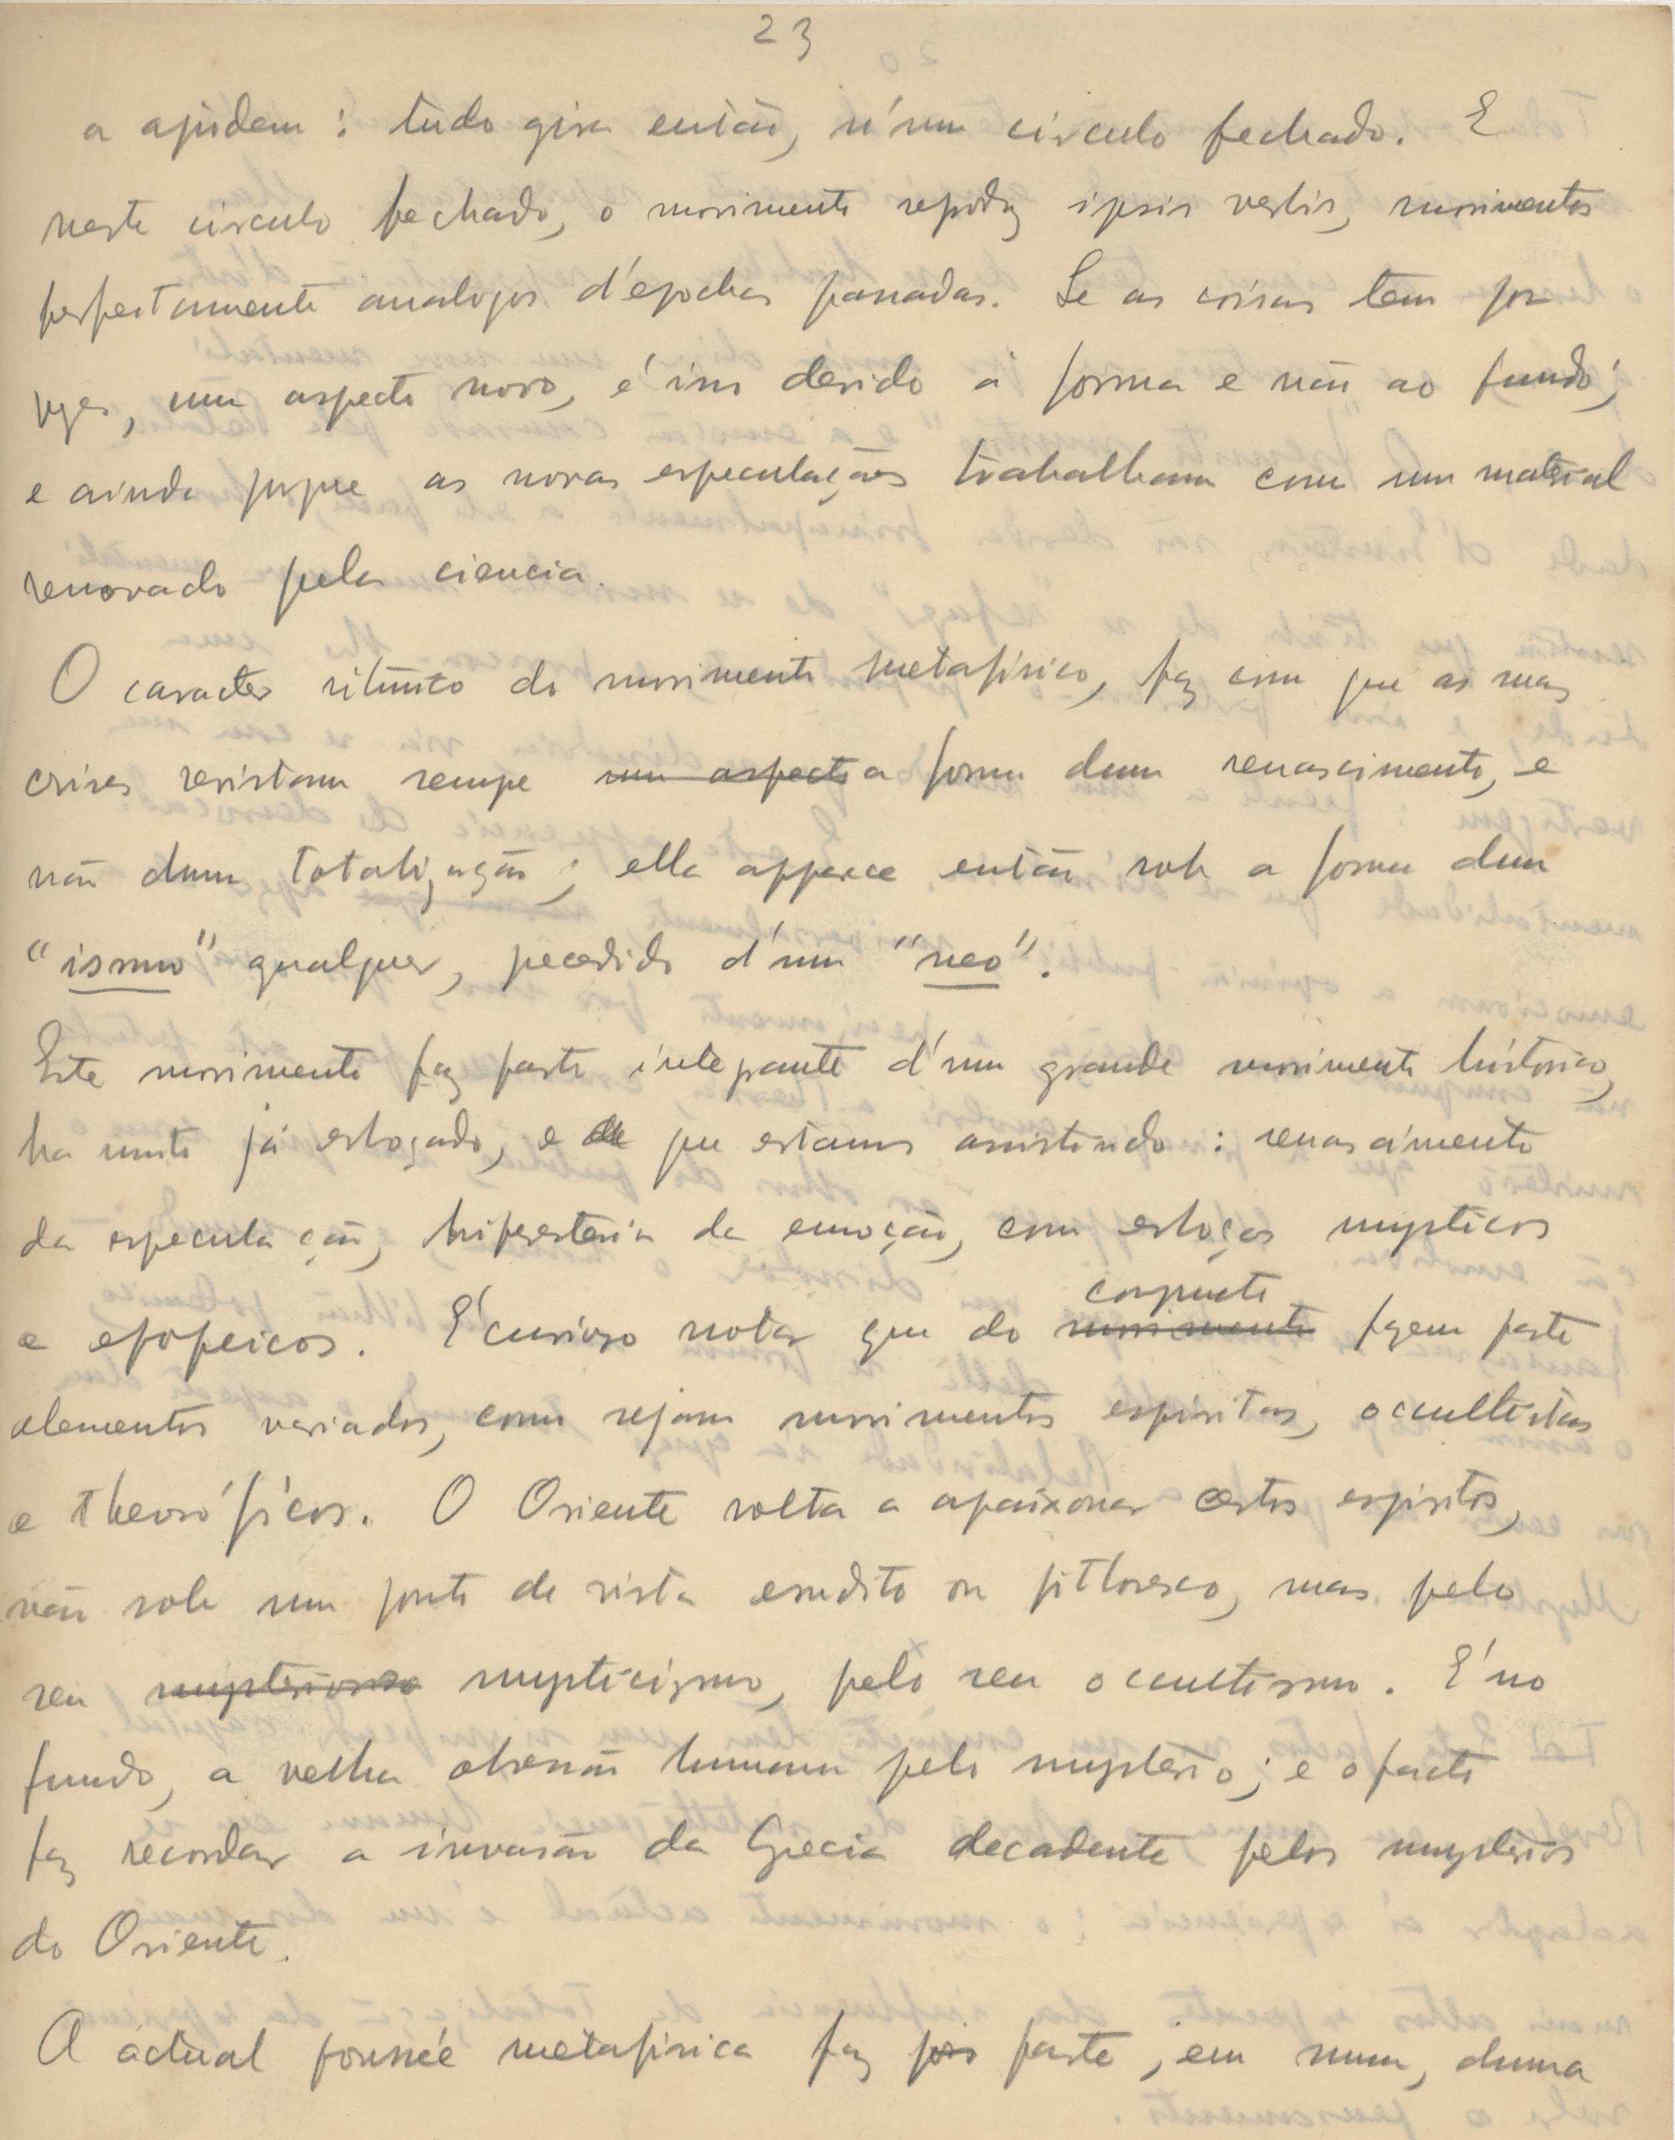 23
a ajudam : tudo gira então, n'um circulo fechado. E
neste circulo fechado, o movimento reproduz ipsis verbis, movimentos
perfeitamente analogos d'epochas passadas. Se as coisas tem por
vezes, um aspecto novo, é isso devido á forma e não ao fundo;
e ainda porque as novas especulações trabalham com um material
renovado pela ciencia.
O caracter ritmico do movimento metafisico, faz com que as suas
crises revistam sempre um aspecto a forma dum renascimento, e
não duma totalização ; ella apparece então sob a forma dum
"ismo" qualquer, precedido d'um "neo".
Este movimento faz parte integrante d'um grande movimento historico,
ha muito já esboçado, e de que estamos assistindo : renascimento
da especulação, hiperesteria da emoção, com esboços mysticos
e epopeicos. É curioso notar que do movimento conjuncto fazem parte
elementos variados, como sejam movimentos espiritas, occultistas
e theosóficos. O Oriente volta a apaixonar certos espiritos,
não sob um ponto de vista erudito ou pittoresco, mas pelo
seu mysterioso mysticismo, pelo seu occultismo. É no
fundo, a velha obsessão humana pelo mysterio; e o facto
faz recordar a invasão da Grecia decadente pelos mysterios
do Oriente.
A actual poussée metafisica faz pois parte, em suma, duma